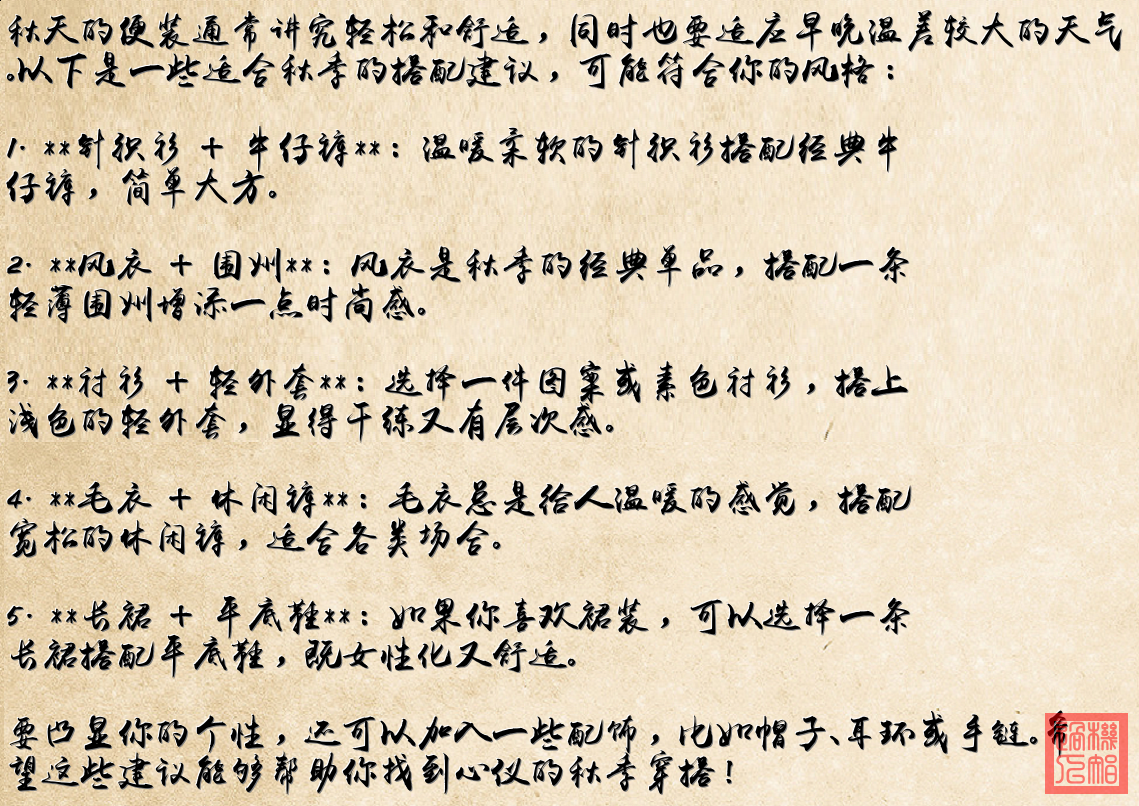 秋天的便装通常讲究轻松和舒适，同时也要适应早晚温差较大的天气
。以下是一些适合秋季的搭配建议，可能符合你的风格：
1. **针织衫 + 牛仔裤**：温暖柔软的针织衫搭配经典牛
仔裤，简单大方。
2. **风衣 + 围州**：风衣是秋季的经典单品，搭配一条
轻薄围州增添一点时尚感。
3. **衬衫 + 轻外套**：选择一件图案或素色衬衫，搭上
浅色的轻外套，显得干练又有层次感。
4. **毛衣 + 休闲裤**：毛衣总是给人温暖的感觉，搭配
宽松的休闲裤，适合各类场合。
5. **长裙 + 平底鞋**：如果你喜欢裙装，可以选择一条
长裙搭配平底鞋，既女性化又舒适。
要凸显你的个性，还可以加入一些配饰，比如帽子、耳环或手链。希
望这些建议能够帮助你找到心仪的秋季穿搭！